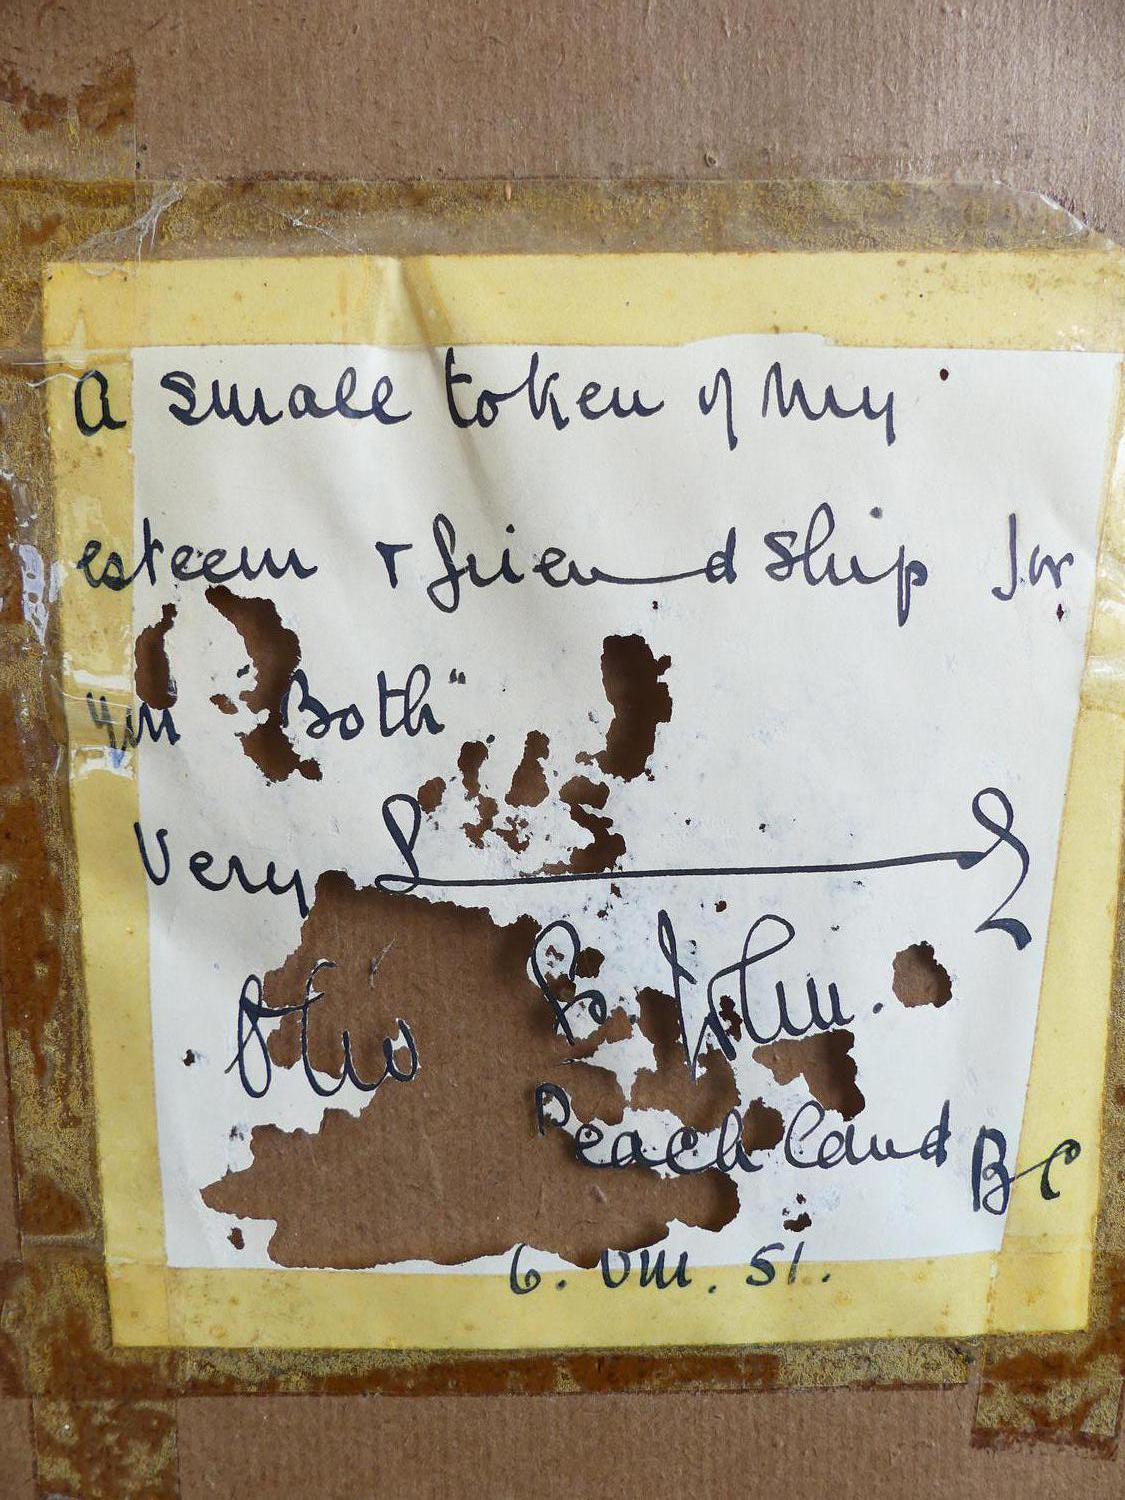 A small token of my
esteem & friendship for
you "Both"
Very S
B. John.
Peachland BC
6. VIII. 51.